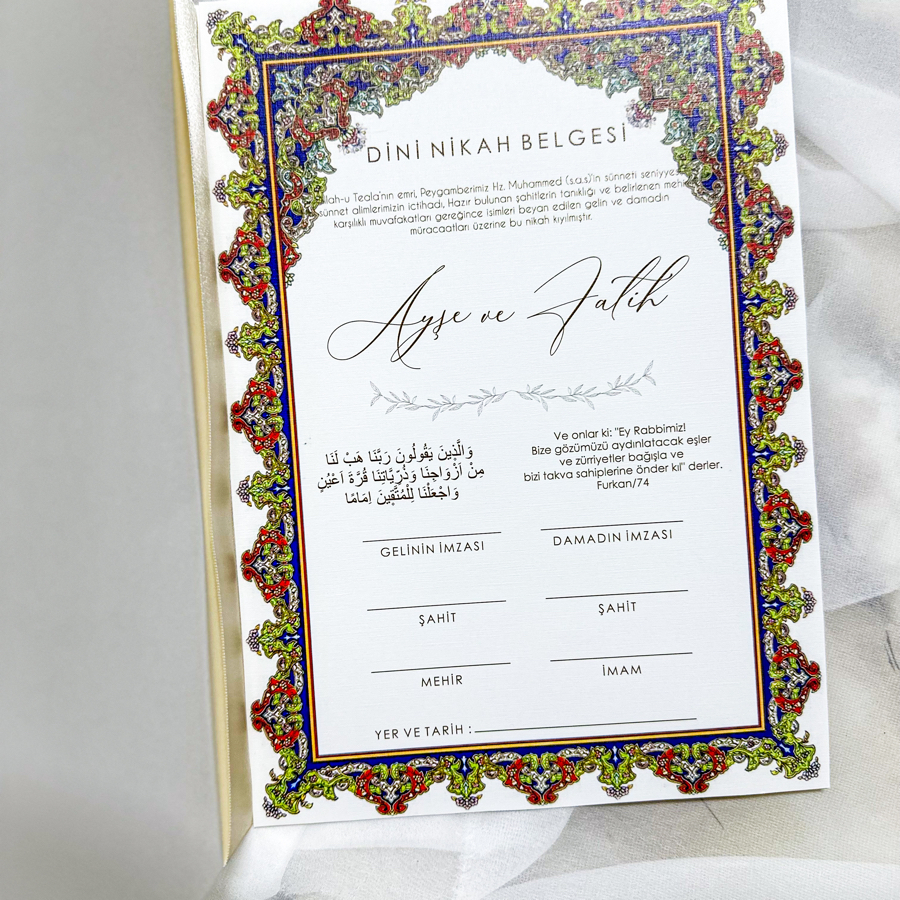 DİNİ NİKAH BELGESİ
Teala'nın emri, Peygamberimiz Hz. Muhammed (s.a.s)'in sünneti
sünnet alimlerimizin ictihadı, Hazır bulunan şahitlerin tanıklığı ve belirlenen
karşılıklı muvafakatları gereğince isimleri beyan edilen gelin ve damadın
müracaatları üzerine bu nikah kıyılmıştır.
Ayşe ve Fatih
وَالَّذِينَ يَقُولُونَ رَبَّنَا هَبْ لَنَا
مِنْ أَزْوَاجِنَا وَذُرِّيَّاتِنَا قُرَّةَ أَعْيُنٍ
وَاجْعَلْنَا لِلْمُتَّقِينَ إِمَامًا
Ve onlar ki: "Ey Rabbimiz!
Bize gözümüzü aydınlatacak eşler
ve zürriyetler bağışla ve
bizi takva sahiplerine önder kıl" derler.
Furkan/74
GELİNİN İMZASI
DAMADIN İMZASI
ŞAHİT
ŞAHİT
MEHİR
İMAM
YER VE TARİH :